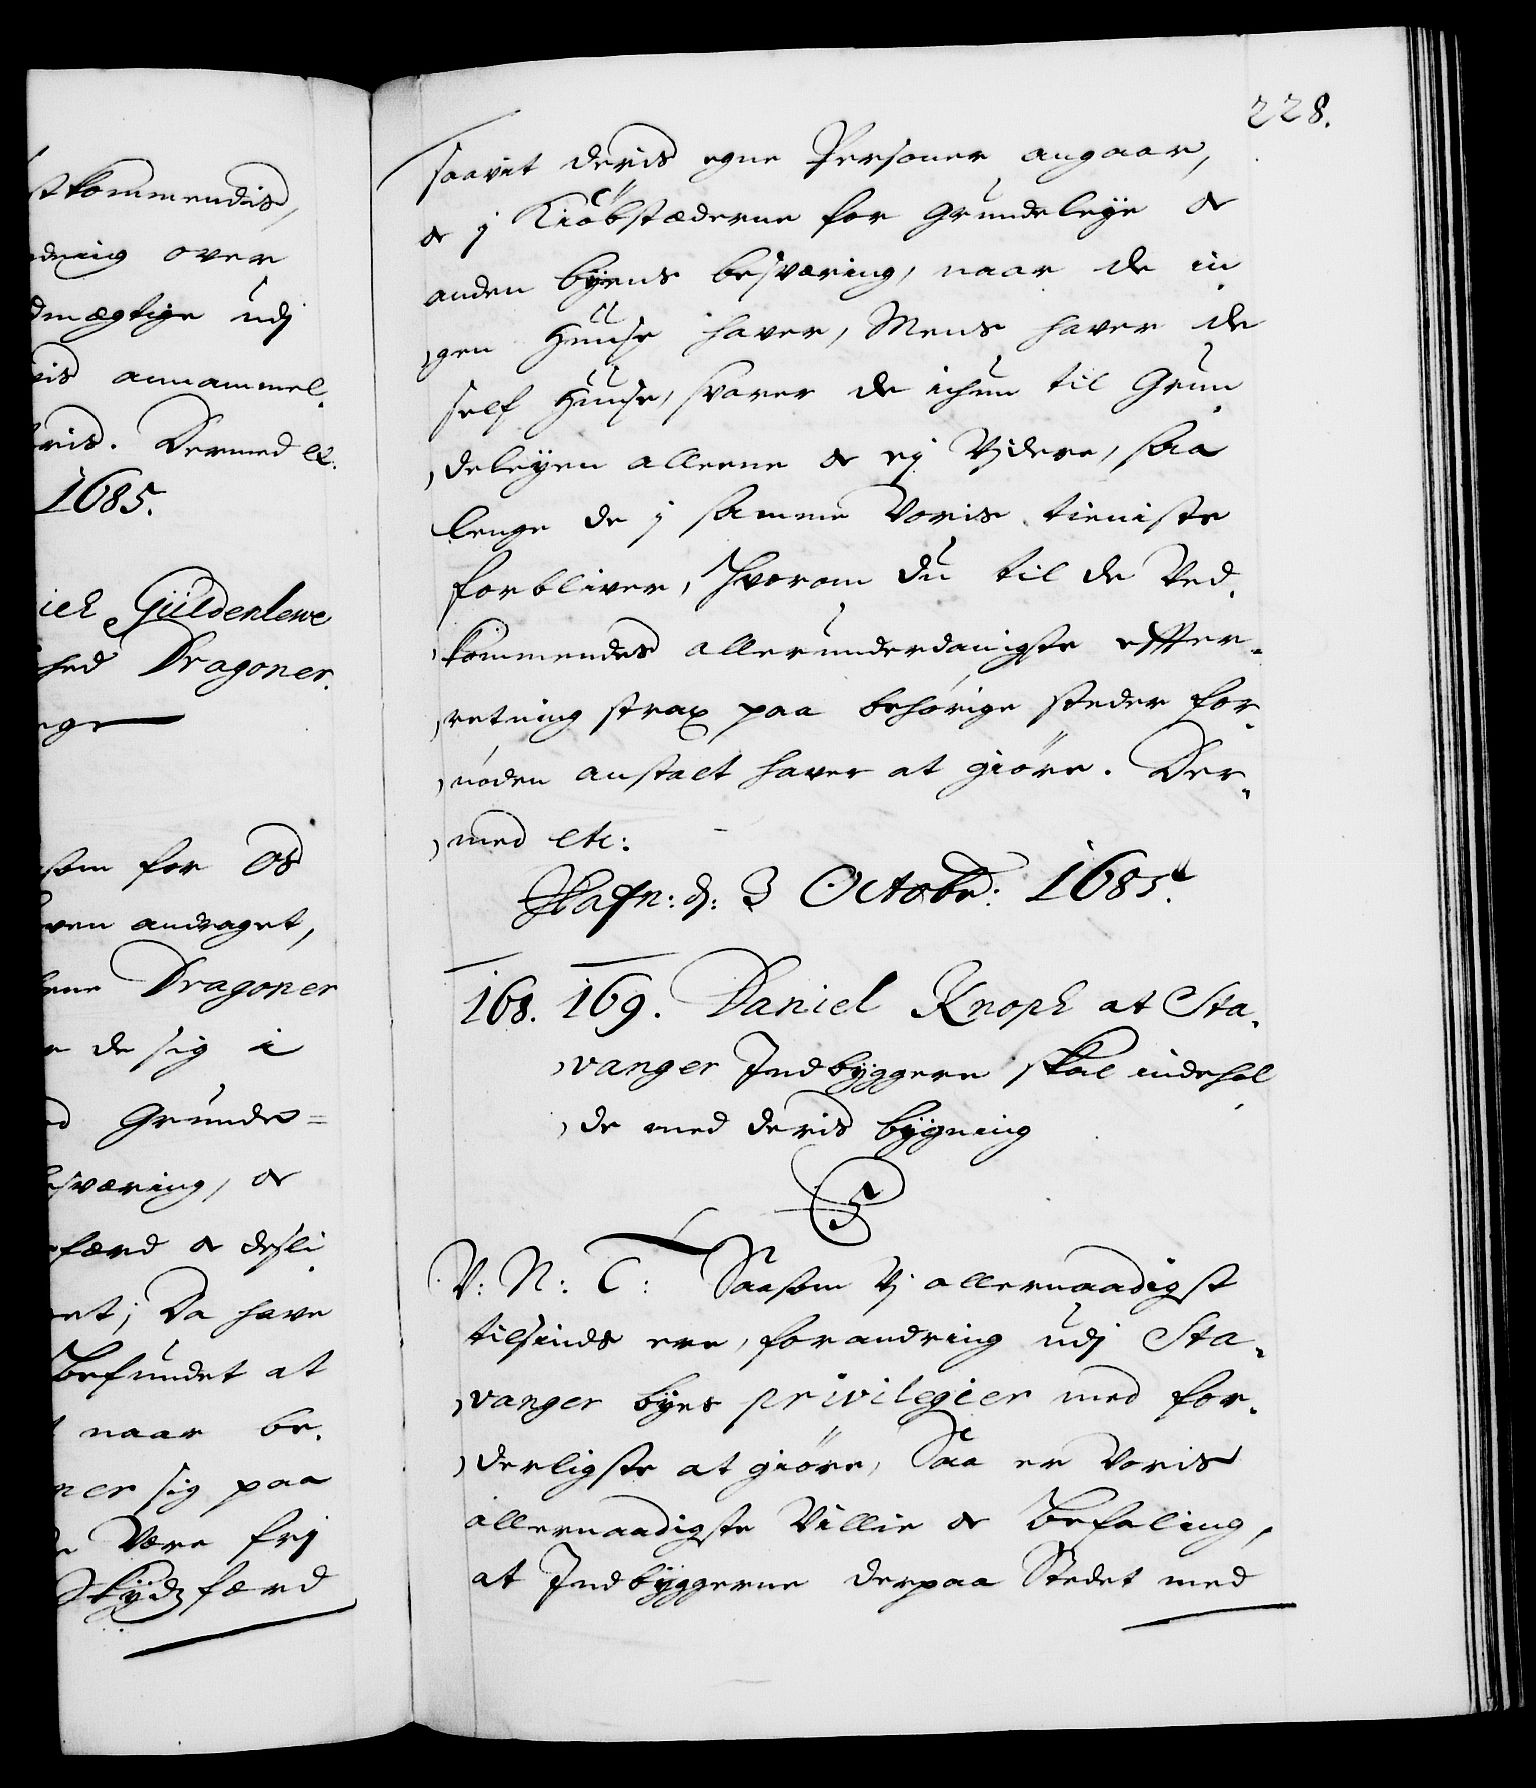 stkommendis,
dning over
dmægtige udj
vis annammel
ris. Dermed etc.
1685.
ich Güldenlewe
hed Dragoner.
ege
som for os
ven andraget,
ene Dragoner
e de sig i
d Grunde=
esværing, &
færd & desli
et; Da have
Befundet at
naar be.
ner sig paa
e Være frj
Skydtzfærd
228.
saavit deris egne Personer angaar,
& j Kiöbstæderne for Grundeleye &
anden byens besværing, naar de in
gen Huuse haver, Mens haver de
self Huuse, svarer de ickun til Grun
deleyen alleene & ej Videre, saa
lenge de j samme Voris tieniste
forbliver, Hvorom du til de Ved
kommendes allerunderdanigste effter
retning strax paa behörige steder for
nöden anstalt haver at giöre. Der
med etc:
Hafn: d: 3 Octobr: 1685.
168. 169. Daniel Knoph at Sta
vanger Indbyggere skal indehol
de med deris bygning
C5
V: N: T: Saasom Vj allernaadigst
tilsinds ere, forandring udj Sta
vanger byes privilegier med for
derligste at giöre, Saa er Voris
allernaadigste Villie & Befaling,
at Indbyggerne derpaa Stedet med